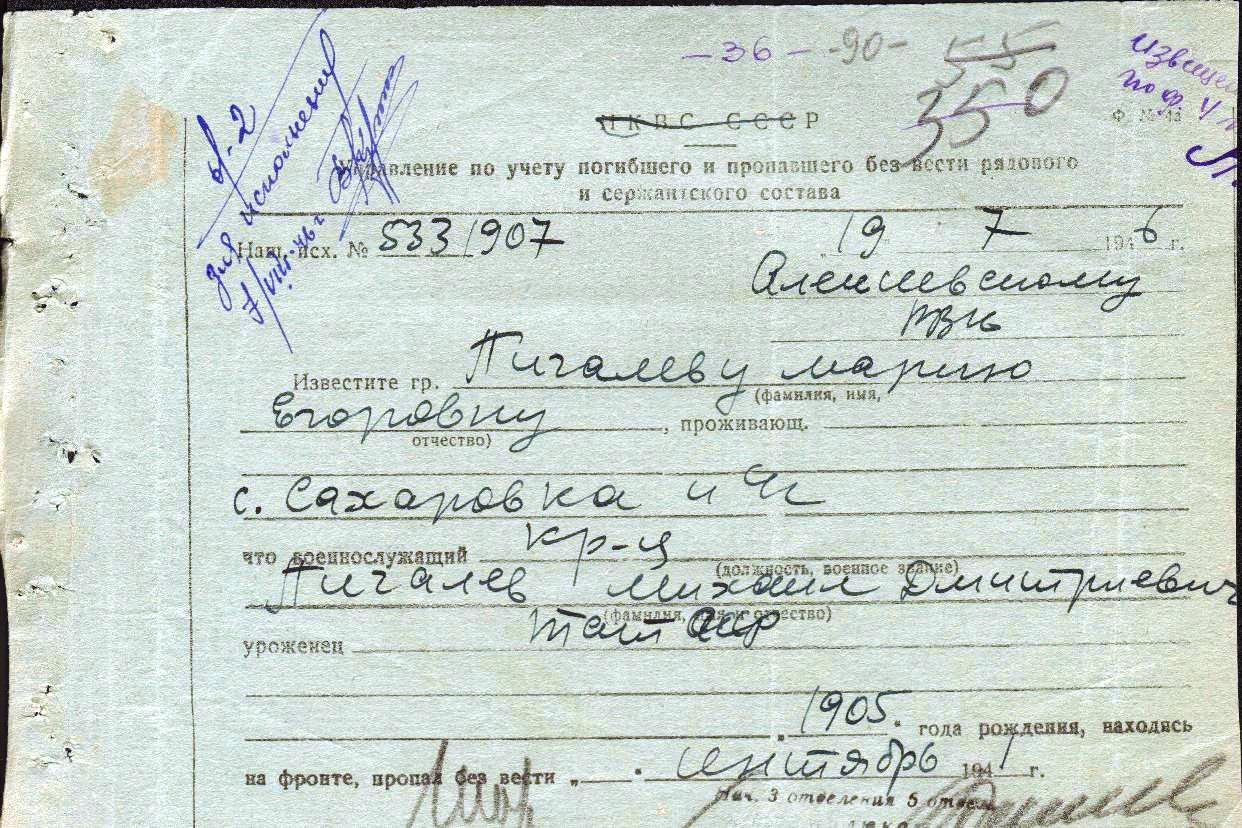 -36- -90- 55
350
извещен
по ф. 4
Ф. № 43
НКВС СССР
Управление по учету погибшего и пропавшего без вести рядового
и сержантского состава
ф-2
для исполнения
7/VIII-46 г
Наш исх. № 533/907 19 7 1946 г.
Алексеевскому
РВК
Известите гр. Пигалеву Марию
(фамилия, имя,
Егоровну, проживающ.
отчество)
с. Сахаровка и ЧС
что военнослужащий кр-ц
(должность, военное звание)
Пигалев Михаил Дмитриевич
(фамилия, имя и отчество)
уроженец Тат АССР
1905. года рождения, находясь
на фронте, пропал без вести „ " сентябрь 1941 г.
Нач. 3 отделения 5 отдела